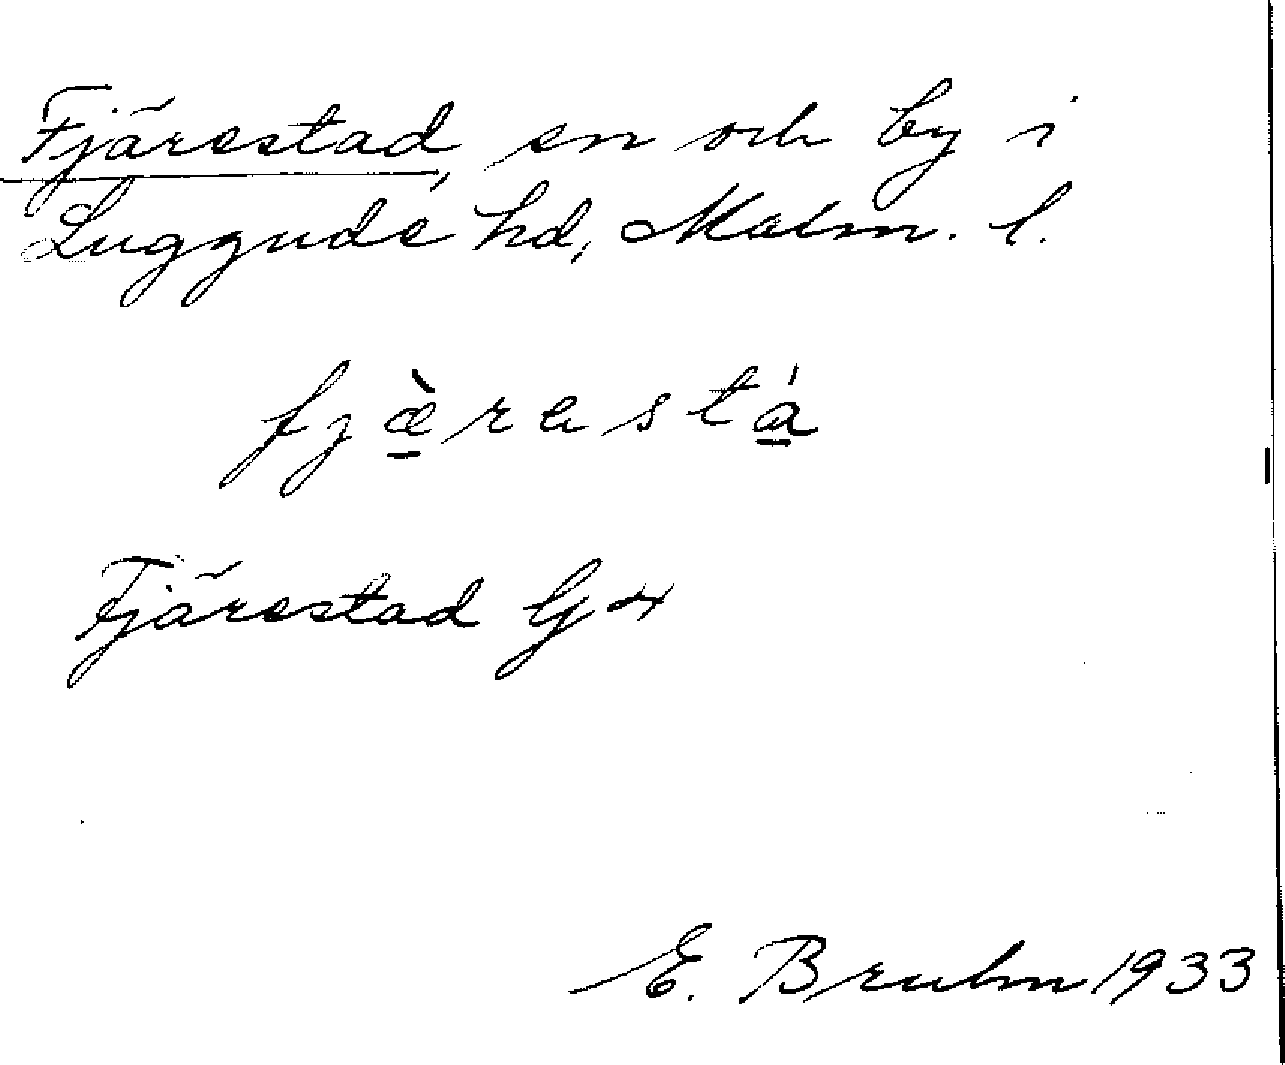 Fjärestad, sn och by i
Luggude hd, Malm. l.
fjæ̀rastá
Fjärestad Gx
E. Bruhn 1933